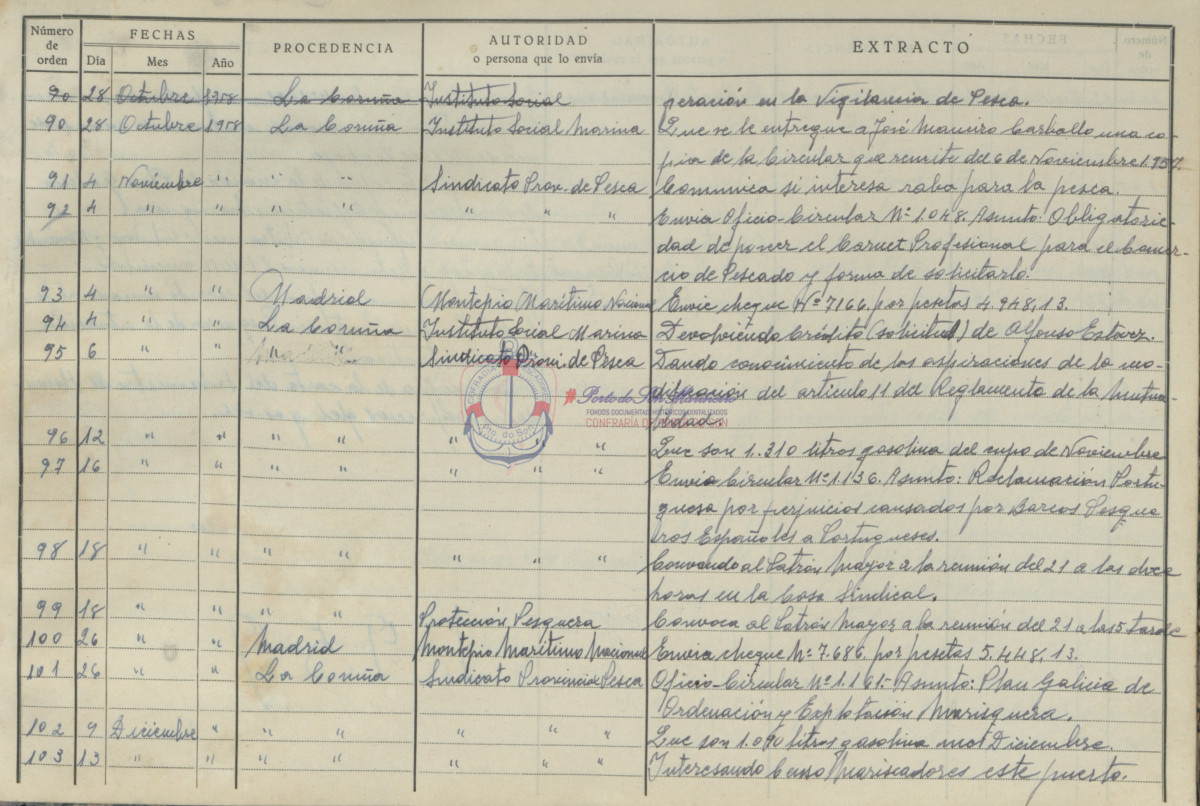 Número de orden | FECHAS | PROCEDENCIA | AUTORIDAD o persona que lo envía | EXTRACTO
Día | Mes | Año
90 28 Octubre 1958 La Coruña Instituto Social peración en la Vigilancia de Pesca.
90 28 Octubre 1958 La Coruña Instituto Social Marina Que se le entregue a José Maneiro Carballo una co-
pia de la Circular que remite del 6 de Noviembre 1.957.
91 4 Noviembre " " " Sindicato Prov. de Pesca Comunica si interesa raba para la pesca.
92 4 " " " " " " " Envia Oficio-Circular Nº 1.048. Asunto: Obligatorie-
dad de poseer el Carnet Profesional para el Comer-
cio de Pescado y forma de solicitarlo.
93 4 " " Madrid Montepio Marítimo Nacional Envie cheque Nº 7166, por pesetas 4.948,13.
94 4 " " La Coruña Instituto Social Marina Devolviendo Crédito (solicitud) de Alfonso Estévez.
95 6 " " " Sindicato Prov. de Pesca Dando conocimiento de las aspiraciones de la mo-
dificación del articulo 11 del Reglamento de la Mutua-
lidad.
96 12 " " " " " " " Que son 1.310 litros gasolina del cupo de Noviembre
97 16 " " " " " " " Envia Circular Nº 1.136. Asunto: Reclamación Portu-
guesa por perjuicios causados por Barcos Pesque-
ros Españoles a Portugueses.
98 18 " " " " " " " Convocando al Patrón Mayor a la reunión del 21 a las doce
horas en la Casa Sindical.
99 18 " " " " Protección Pesquera Convoca al Patrón Mayor a la reunión del 21 a las 5 tarde
100 26 " " Madrid Montepio Marítimo Nacional Envia cheque Nº 7.686, por pesetas 5.448,13.
101 26 " " La Coruña Sindicato Provincial Pesca Oficio-Circular Nº 1.161- Asunto: Plan Galicia de
Ordenación y Explotación Marisquera.
102 9 Diciembre " " " " " " Que son 1.090 litros gasolina mes Diciembre.
103 13 " " " " " " " Interesando Censo Mariscadores este puerto.
COFRADIA
Pto. do Son
#Porto do Son Mariñeiro
FONDOS DOCUMENTAIS HISTÓRICOS DIXITALIZADOS
CONFRARÍA DE PORTO DO SON